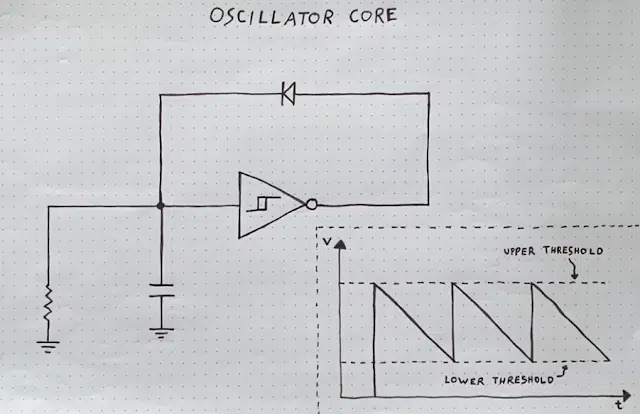 OSCILLATOR CORE
V
UPPER THRESHOLD
LOWER THRESHOLD
t